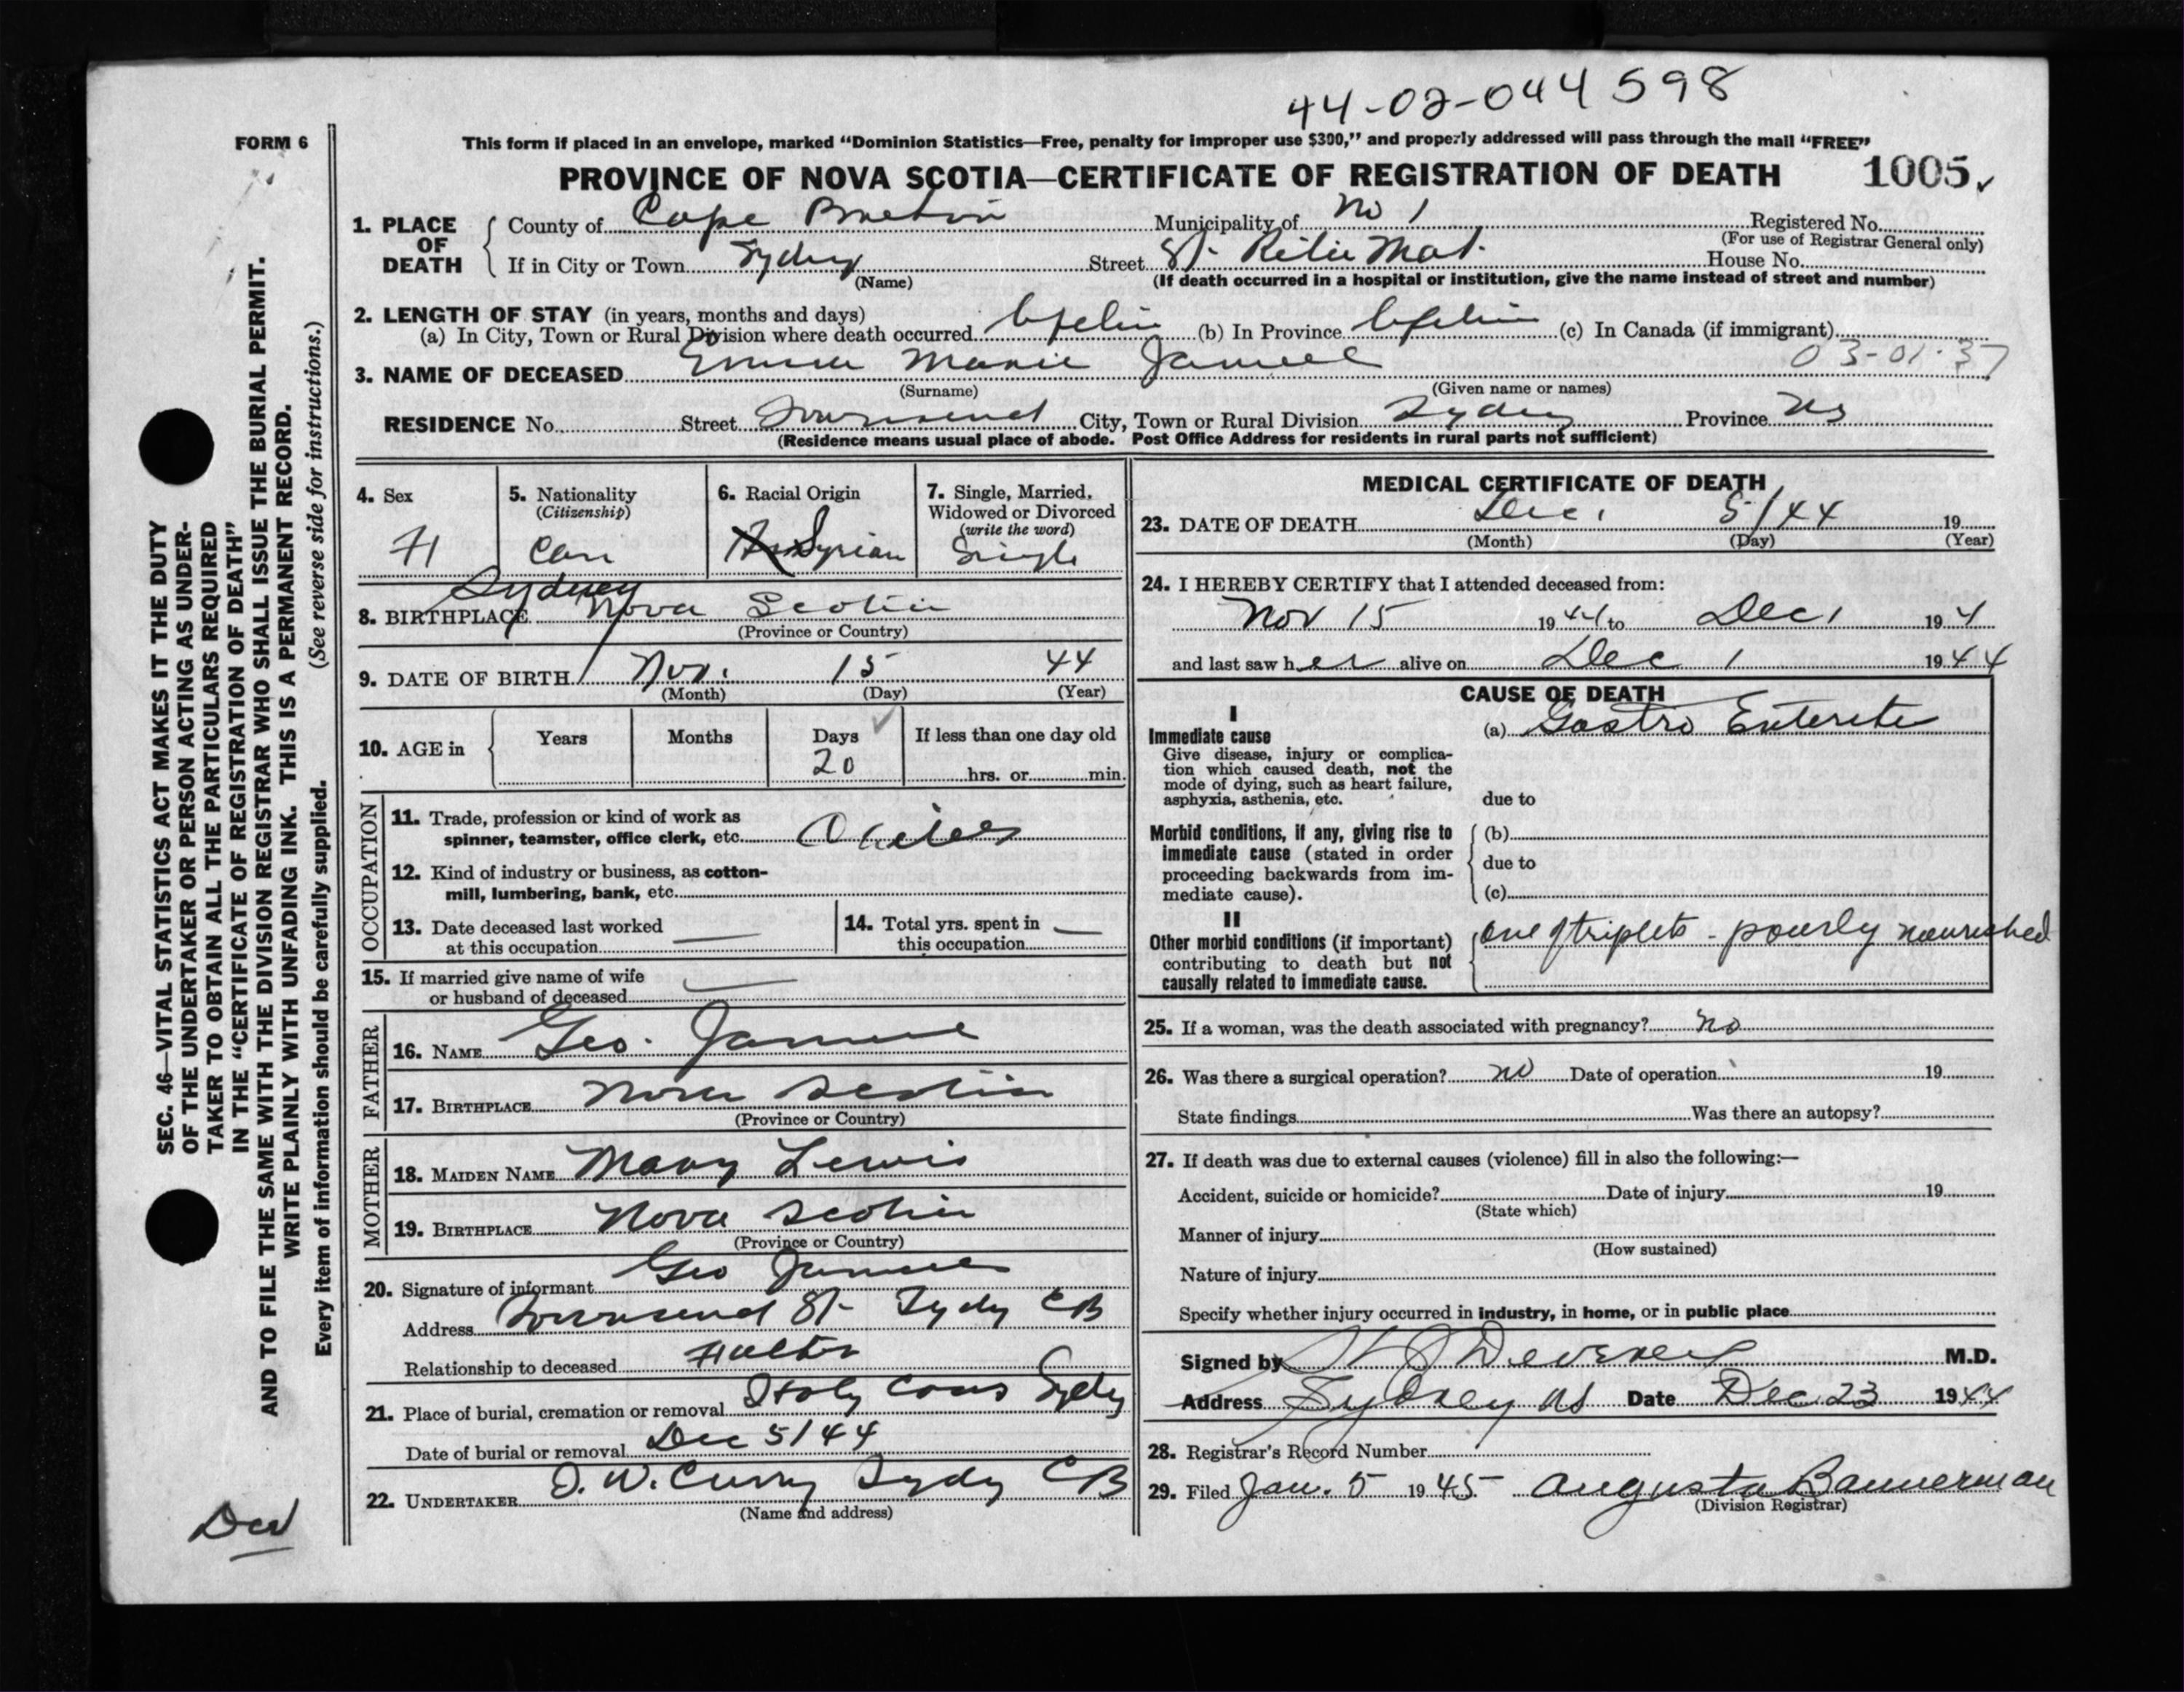 44-02-044598
FORM 6
This form if placed in an envelope, marked “Dominion Statistics—Free, penalty for improper use $300,” and properly addressed will pass through the mail “FREE”
PROVINCE OF NOVA SCOTIA—CERTIFICATE OF REGISTRATION OF DEATH 1005
1. PLACE OF DEATH
County of Cape Breton Municipality of No 1 Registered No.
(For use of Registrar General only)
If in City or Town Sydney Street St. House No.
(Name) (If death occurred in a hospital or institution, give the name instead of street and number)
2. LENGTH OF STAY (in years, months and days)
(a) In City, Town or Rural Division where death occurred Lifetime (b) In Province Lifetime (c) In Canada (if immigrant)
03-01-37
3. NAME OF DECEASED Marie
(Surname) (Given name or names)
RESIDENCE No. Street Townsend City, Town or Rural Division Sydney Province NS
(Residence means usual place of abode. Post Office Address for residents in rural parts not sufficient)
4. Sex
F
5. Nationality
(Citizenship)
Can
6. Racial Origin
Syrian
7. Single, Married, Widowed or Divorced
(write the word)
Single
8. BIRTHPLACE Sydney Nova Scotia
(Province or Country)
9. DATE OF BIRTH Nov. 15 44
(Month) (Day) (Year)
10. AGE in Years Months Days If less than one day old
20 hrs. or min.
OCCUPATION
11. Trade, profession or kind of work as
spinner, teamster, office clerk, etc.
12. Kind of industry or business, as cotton-
mill, lumbering, bank, etc.
13. Date deceased last worked
at this occupation —
14. Total yrs. spent in
this occupation —
15. If married give name of wife
or husband of deceased —
FATHER
16. NAME Geo.
17. BIRTHPLACE Nova Scotia
(Province or Country)
MOTHER
18. MAIDEN NAME Mary Lewis
19. BIRTHPLACE Nova Scotia
(Province or Country)
20. Signature of informant Geo
Address Townsend St- Sydney CB
Relationship to deceased Father
21. Place of burial, cremation or removal Holy Cross Sydney
Date of burial or removal Dec 5/44
22. UNDERTAKER W. Curry Sydney CB
(Name and address)
MEDICAL CERTIFICATE OF DEATH
23. DATE OF DEATH Dec. 5/44 19
(Month) (Day) (Year)
24. I HEREBY CERTIFY that I attended deceased from:
Nov 15 1944 to Dec 1 194
and last saw her alive on Dec 1 1944
CAUSE OF DEATH
I
Immediate cause
Give disease, injury or complica-
tion which caused death, not the
mode of dying, such as heart failure,
asphyxia, asthenia, etc.
(a) Gastro
due to
Morbid conditions, if any, giving rise to
immediate cause (stated in order
proceeding backwards from im-
mediate cause).
(b)
due to
(c)
II
Other morbid conditions (if important)
contributing to death but not
causally related to immediate cause.
one of triplets - pourly nourished
25. If a woman, was the death associated with pregnancy? no
26. Was there a surgical operation? no Date of operation 19
State findings Was there an autopsy?
27. If death was due to external causes (violence) fill in also the following:—
Accident, suicide or homicide? Date of injury 19
(State which)
Manner of injury
(How sustained)
Nature of injury
Specify whether injury occurred in industry, in home, or in public place
Signed by M.D.
Address Sydney NS Date Dec 23 1944
28. Registrar's Record Number
29. Filed Jan. 5 1945 Augusta Bannerman
(Division Registrar)
SEC. 46—VITAL STATISTICS ACT MAKES IT THE DUTY
OF THE UNDERTAKER OR PERSON ACTING AS UNDER-
TAKER TO OBTAIN ALL THE PARTICULARS REQUIRED
IN THE “CERTIFICATE OF REGISTRATION OF DEATH”
AND TO FILE THE SAME WITH THE DIVISION REGISTRAR WHO SHALL ISSUE THE BURIAL PERMIT.
WRITE PLAINLY WITH UNFADING INK. THIS IS A PERMANENT RECORD.
Every item of information should be carefully supplied. (See reverse side for instructions.)